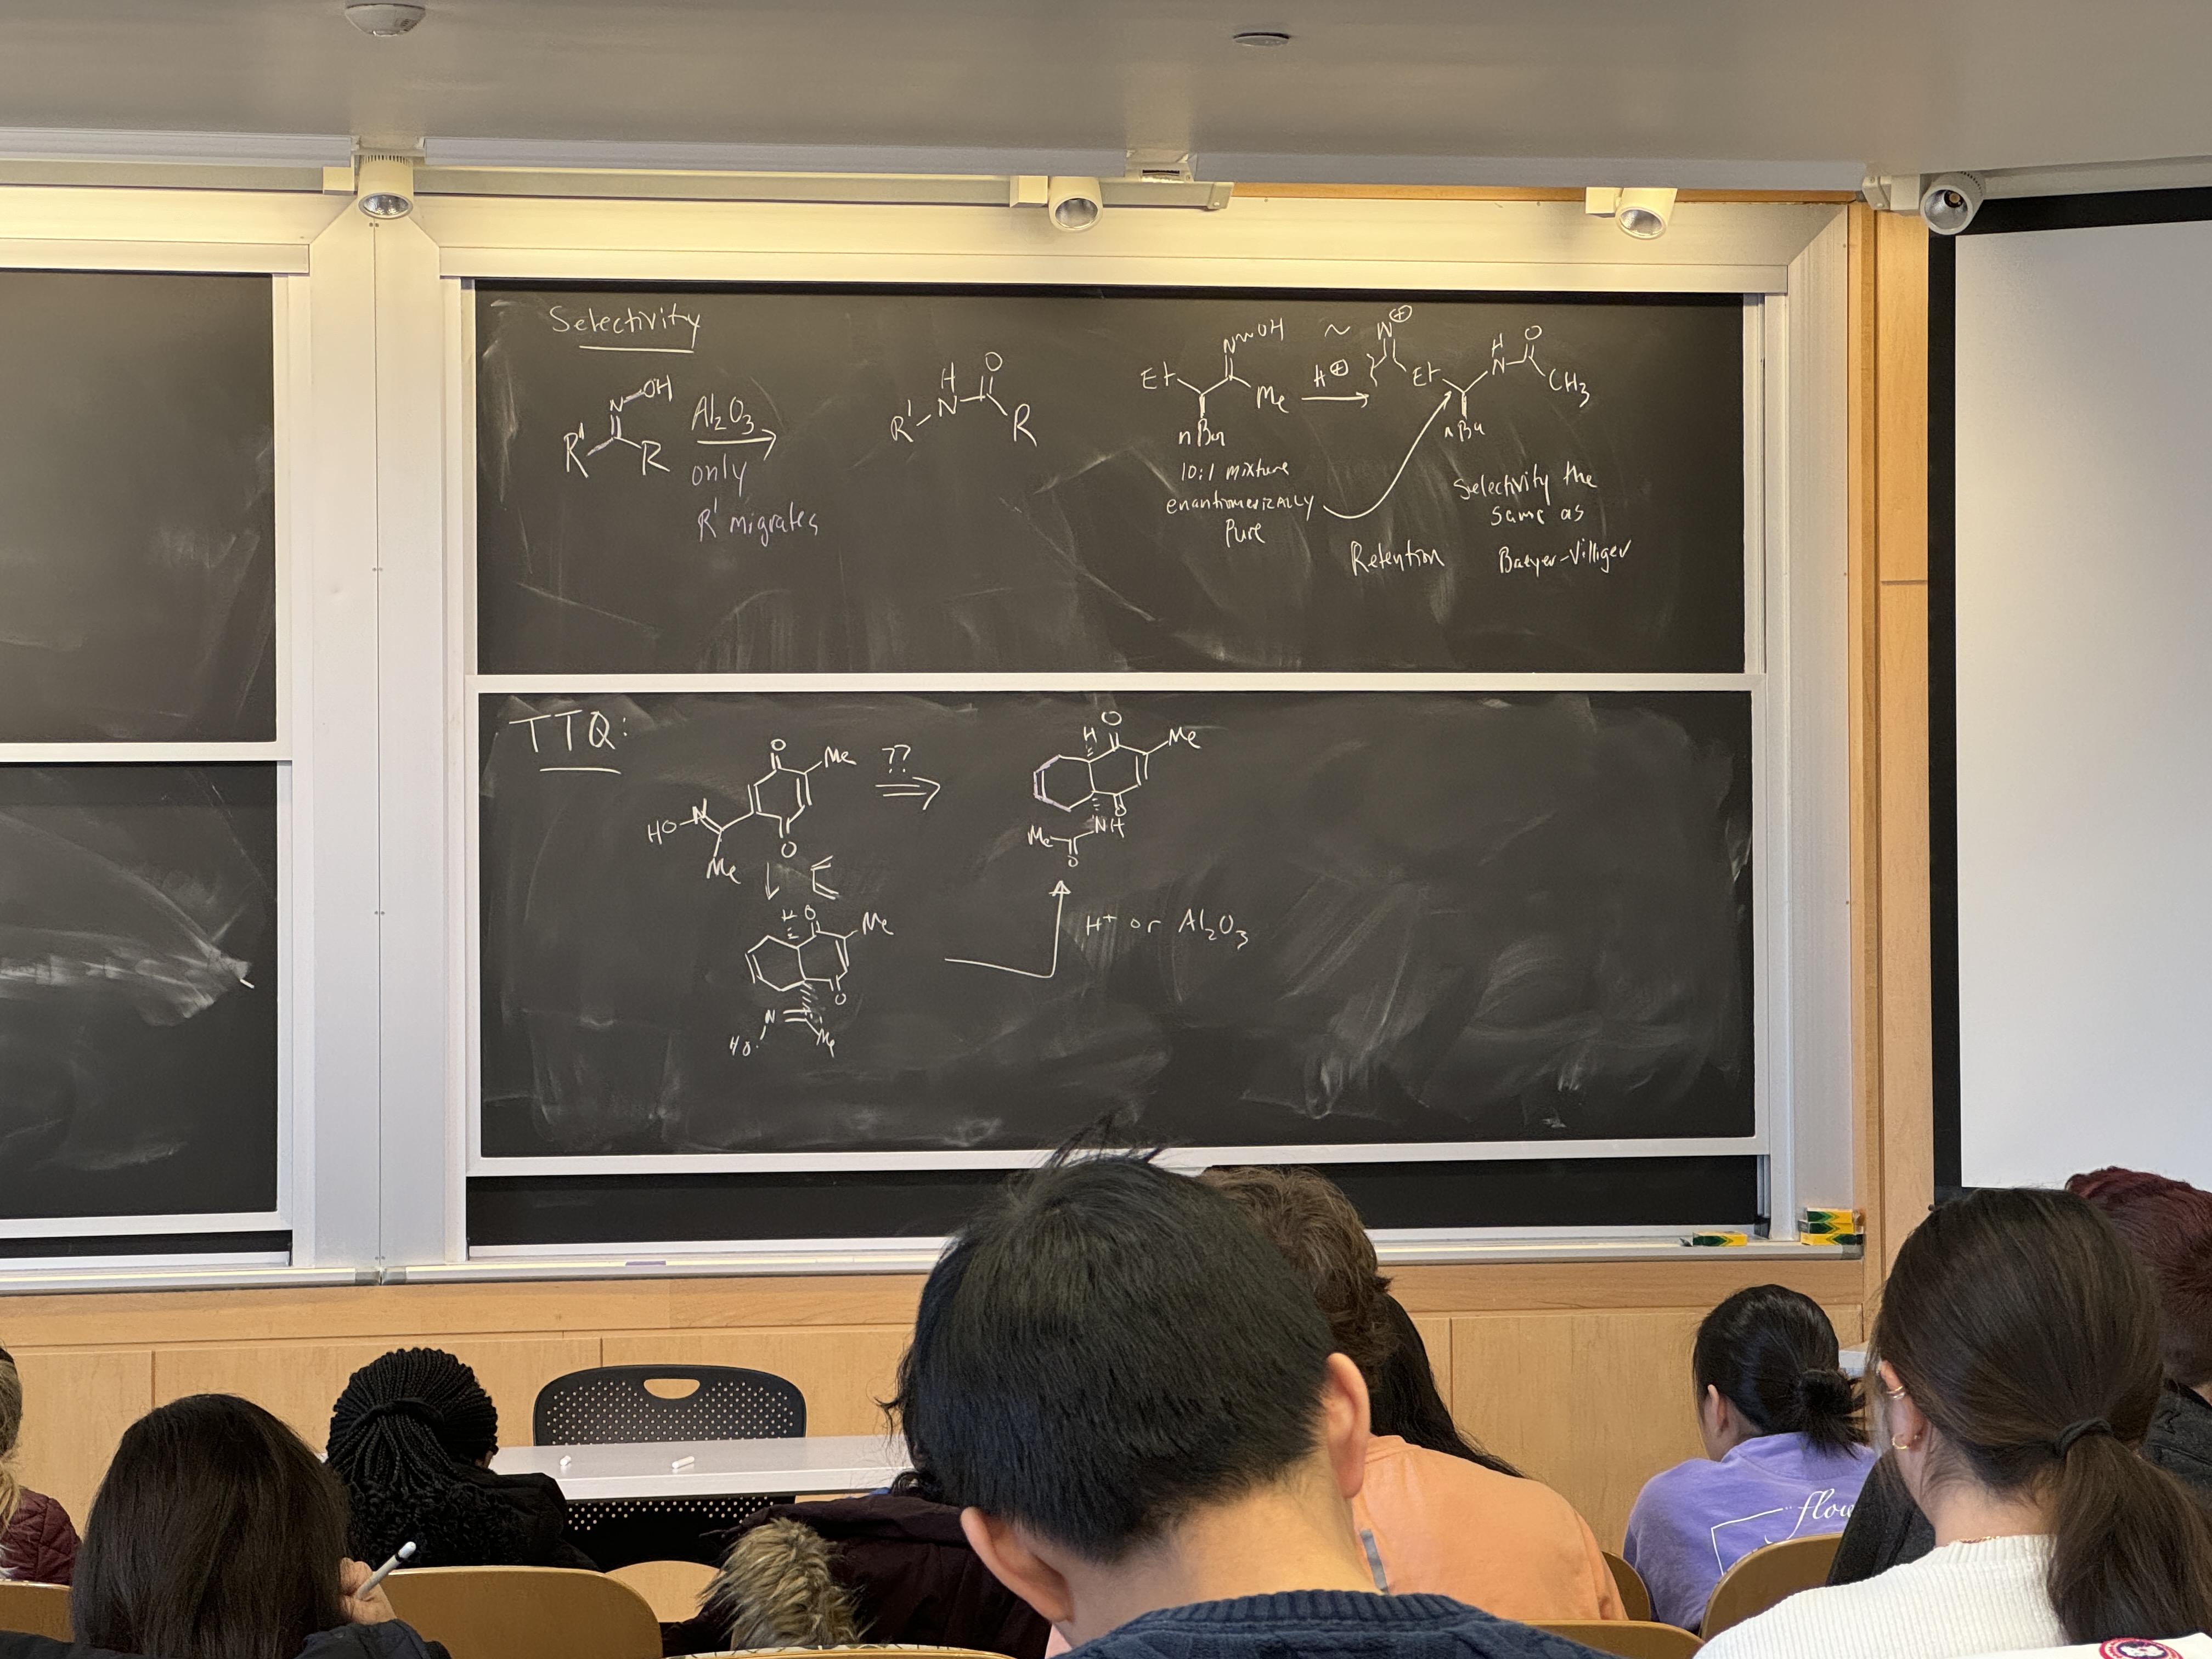 Selectivity
N OH
R' R
Al2O3
only
R' migrates
H O
R' N R
N OH
Et Me
nBu
10:1 mixture
enantiomerizALLY
Pure
~
H⊕
N⊕
H O
Et N CH3
nBu
Selectivity the
same as
Baeyer-Villiger
Retention
TTQ:
O Me
HO N
Me O
??
H O Me
O
NH
Me O
H O Me
O
N
HO Me
H+ or Al2O3
flow